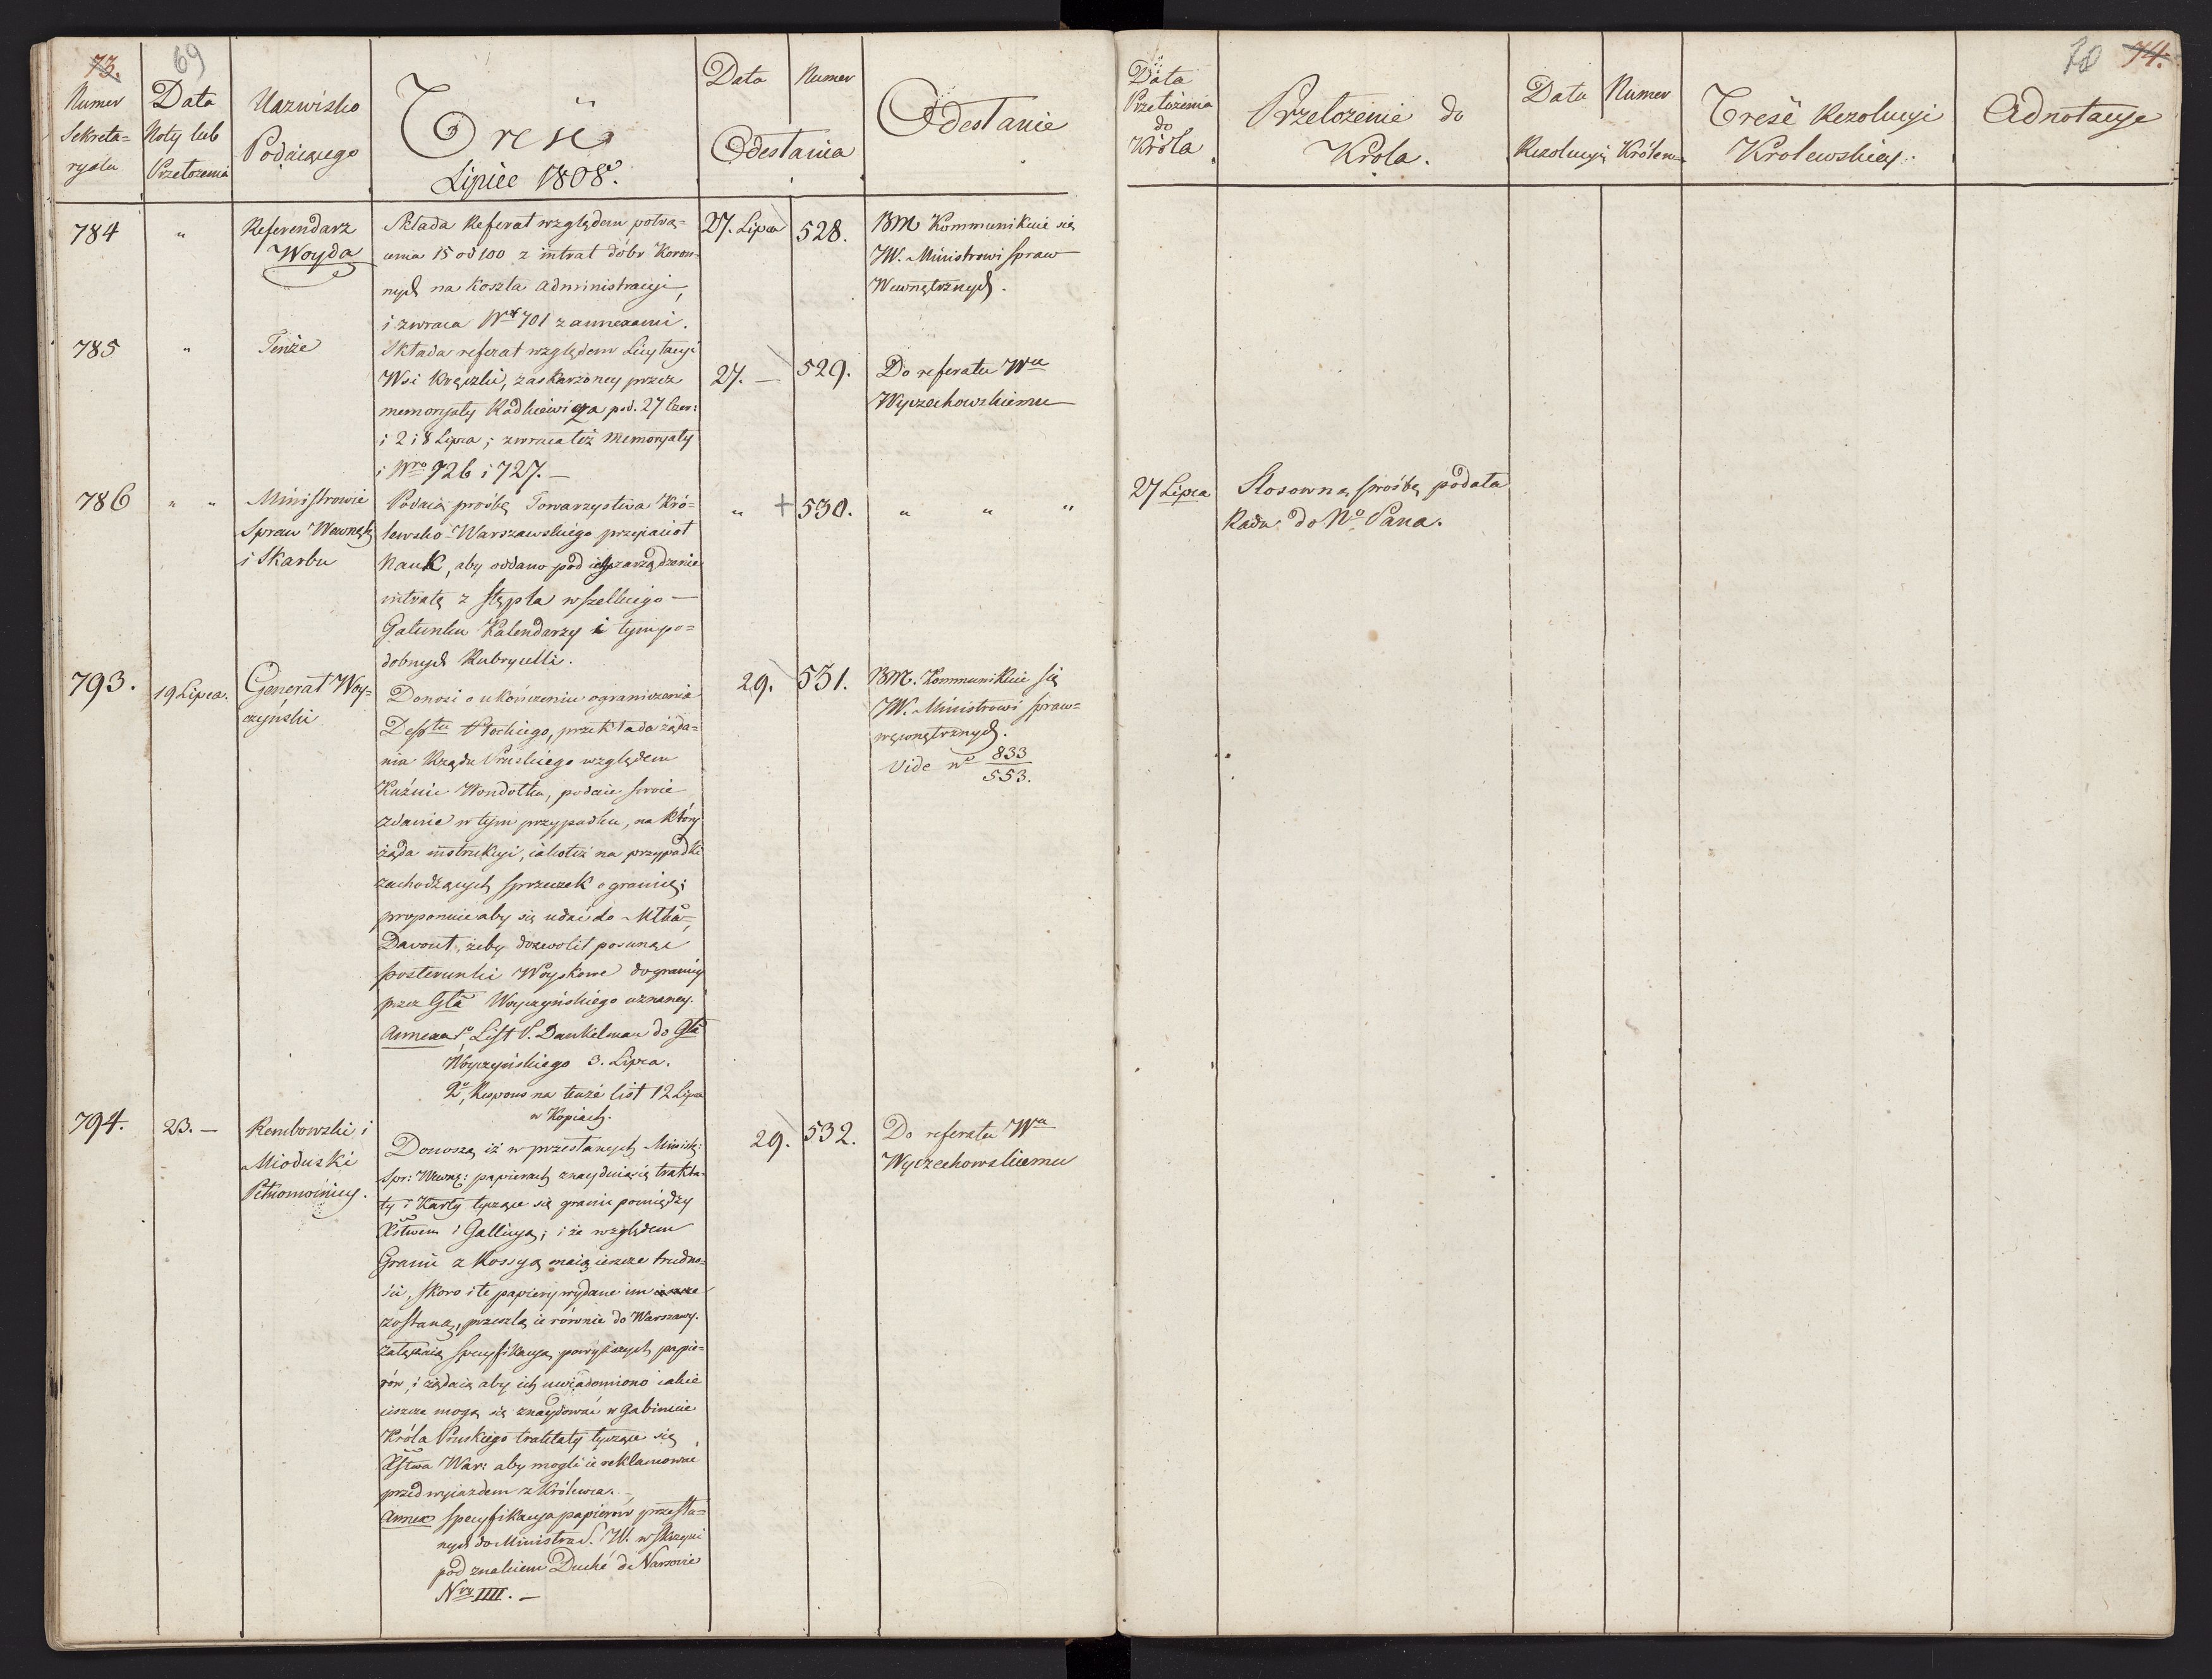 73.
69
Numer
Sekreta=
ryatu
Data
Noty lub
Przełożenia
Nazwisko
Podaiącego
Treść
Lipiec 1808º.
Data
Numer
Odesłania
Odesłanie
784
"
Referendarz
Woyda
Składa Referat względem potrą=
cenia 15 od 100 z intrat dóbr Koron=
nych na Koszta Administracyi,
i zwraca Nr 701 z annexami.
27. Lipca
528.
BM Kommunikuie się
JW. Ministrowi spraw
Wewnętrznych.
785
"
Tenże
Składa referat względem Licytacyi
Wsi Kręczki, zaskarżoney przez
memoryały Radkiewicza pod. 27 Czer:
i 2 i 8 Lipca; zwraca też Memoryały
i Nro 726 i 727. —
27. —
529.
Do referatu Wu
Wyczechowskiemu
786
" "
Ministrowie
Spraw Wewnętr
i Skarbu
Podaią prośbę Towarzystwa Kró=
lewsko-Warszawskiego przyiaciół
Nauk, aby oddano pod ich zarządzenie
intratę z stępla wszelkiego —
Gatunku Kalendarzy i tym po=
dobnych Rubrycelli.
"
+
530.
" " "
793.
19 Lipca.
Generał Woy=
czyński
Donosi o ukończeniu ograniczenia
Depttu Płockiego, przekłada żąda=
nia Rządu Pruskiego względem
Kuźnic Wondołka, podaie swoie
zdanie w tym przypadku, na który
żąda instrukcyi, iakoteż na przypadki
zachodzących sprzeczek o granicę;
proponuie aby się udać do Młka
Davout, żeby dozwolił posunąć
posterunki Woyskowe do granicy
przez Gła Woyczyńskiego uznaney.
Annexa 1º, List P. Dankelman do Gła
Woyczyńskiego 3. Lipca.
2º, Respons na tenże list 12 Lipca
w Kopiach.
29.
531.
BM. Kommunikuie się
JW. Ministrowi spraw=
wewnętrznych.
Vide nº 833
553.
794.
23. —
Rembowski i
Mioduski
Pełnomocnicy.
Donoszą iż w przesłanych Ministr:
Spr: Wewnę: papierach znayduią się trakta=
ty i Karty tyczące się granic pomiędzy
Xstwem i Gallicyą; i że względem
Granic z Rossyą maią ieszcze trudno=
ści, skoro i te papiery wydane im
zostaną, przeszlą ie równie do Warszawy.
załączaią specyfikacyą powyższych papie=
rów, i żądaią aby ich uwiadomiono iakie
ieszcze mogą się znaydować w Gabinecie
Króla Pruskiego traktaty tyczące się
Xstwa War: aby mogli ie reklamować
przed wyiazdem z Królewca. —
Annex specyfikacya papierów przesła=
nych do Ministra S. W. w skrzyni
pod znakiem Duché de Varsovie
Nry IIII. —
29.
532.
Do referatu Wu
Wyczechowskiemu
70
74.
Data
Przełożenia
do
Króla
Przełożenie do
Króla.
Data
Numer
Rezolucyi Królew.
Treść Rezolucyi
Królewskiey.
Adnotacye
27 Lipca
Stosowną prośbę podała
Rada do No Pana.